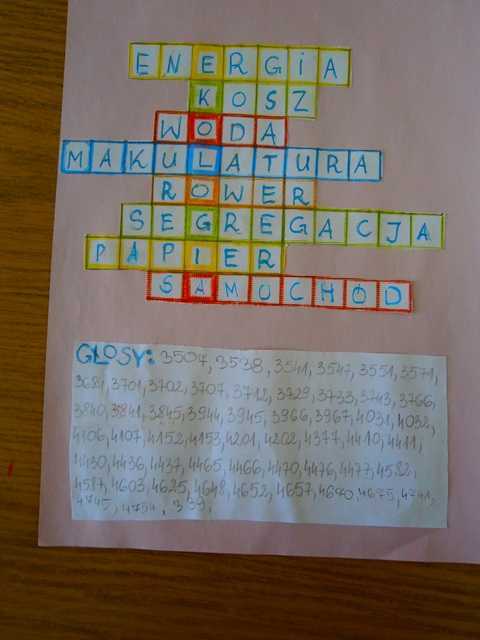 ENERGIA
KOSZ
WODA
MAKULATURA
ROWER
SEGREGACJA
PAPIER
SAMOCHÓD
GŁOSY: 3504, 3538, 3541, 3547, 3551, 3571,
3681, 3701, 3702, 3707, 3712, 3729, 3733, 3743, 3766,
3840, 3841, 3845, 3944, 3945, 3966, 3967, 4031, 4032,
4106, 4107, 4152, 4153, 4201, 4202, 4377, 4410, 4411,
4430, 4436, 4437, 4465, 4466, 4470, 4476, 4477, 4582,
4587, 4603, 4625, 4648, 4652, 4657, 4670, 4675, 4741,
4745, 4754,